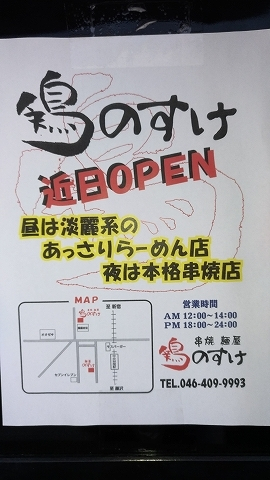 鶏のすけ
近日OPEN
昼は淡麗系の
あっさりらーめん店
夜は本格串焼店
MAP
至 新宿
のすけ
のすけ
セブンイレブン
至 藤沢
営業時間
AM 12:00~14:00
PM 18:00~24:00
串焼 麺屋
鶏のすけ
TEL.046-409-9993